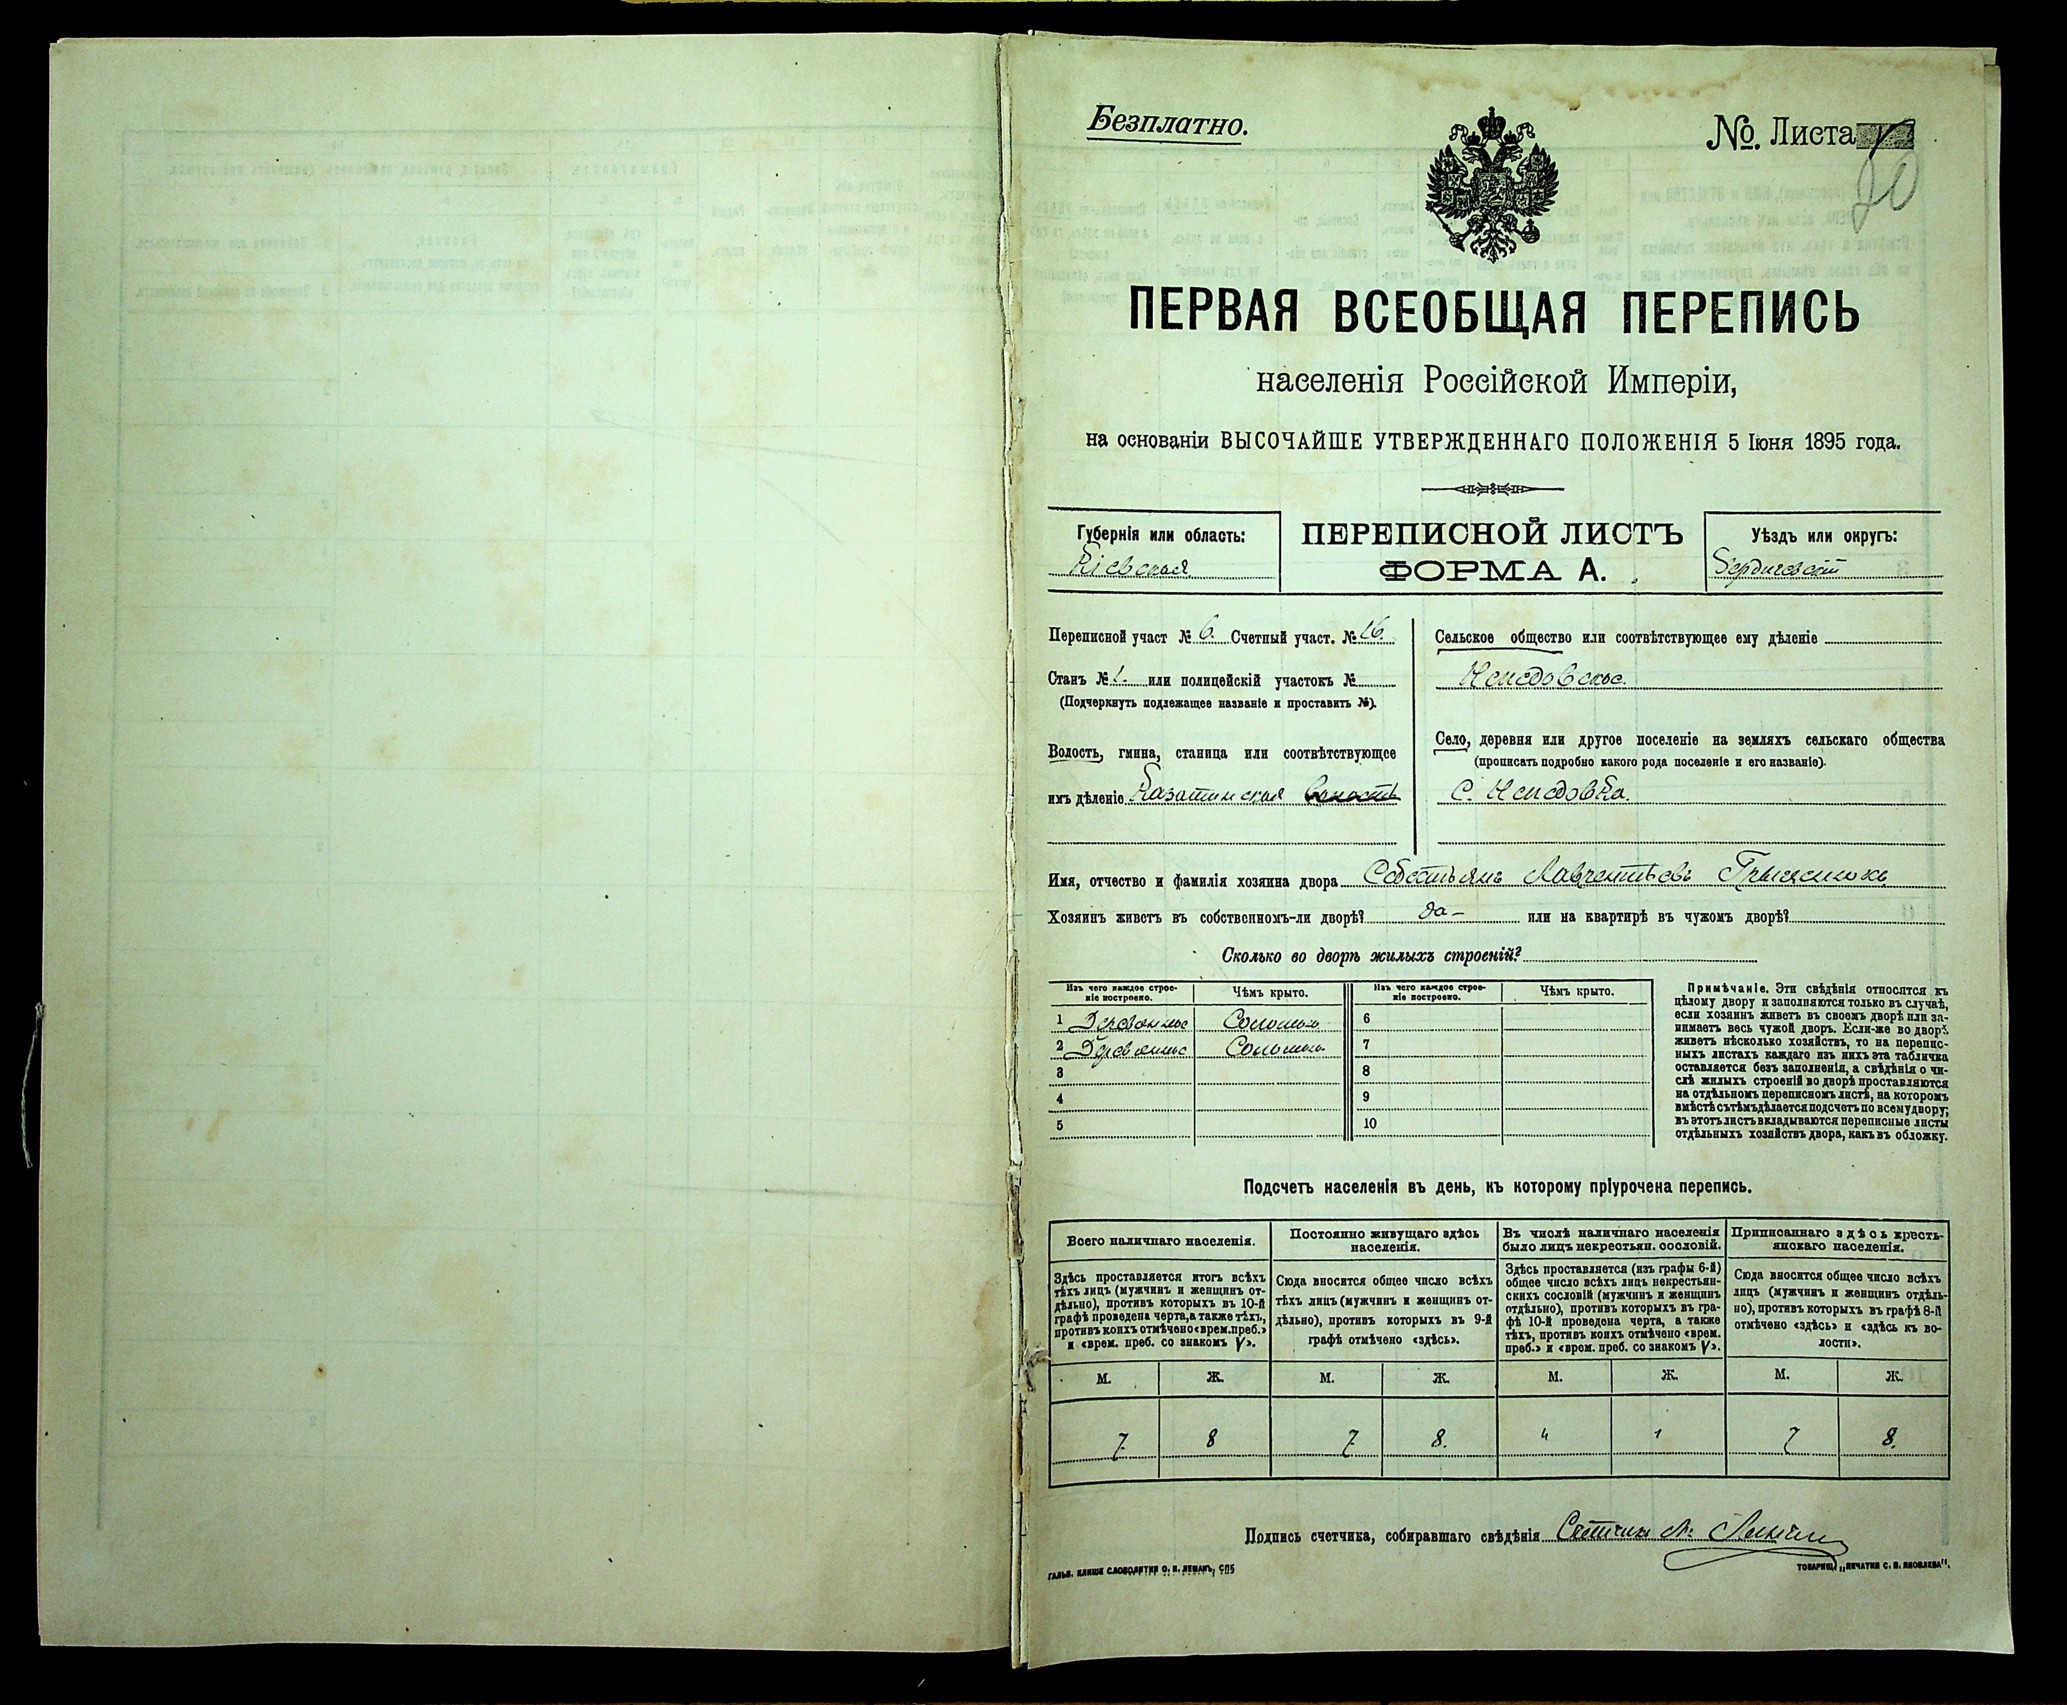 Безплатно.
№. Листа
20
ПЕРВАЯ ВСЕОБЩАЯ ПЕРЕПИСЬ
населенія Россійской Имперіи,
на основаніи ВЫСОЧАЙШЕ УТВЕРЖДЕННАГО ПОЛОЖЕНІЯ 5 Іюня 1895 года.
Губернія или область:
Кіевская
ПЕРЕПИСНОЙ ЛИСТЪ
ФОРМА А.
Уѣздъ или округъ:
Бердичевскій
Переписной участ № 6. Счетный участ. № 16.
Станъ № 1. или полицейскій участокъ №
(Подчеркнуть подлежащее названіе и проставить №).
Волость, гмина, станица или соотвѣтствующее
имъ дѣленіе Казатинская волость
Сельское общество или соотвѣтствующее ему дѣленіе
Село, деревня или другое поселеніе на земляхъ сельскаго общества
(прописать подробно какого рода поселеніе и его названіе).
С.
Имя, отчество и фамилія хозяина двора Себастьянъ Лаврентьевъ
Хозяинъ живетъ въ собственномъ-ли дворѣ? да – или на квартирѣ въ чужомъ дворѣ?
Сколько во дворѣ жилыхъ строеній?
Изъ чего каждое строе-
ніе построено.
Чѣмъ крыто.
Изъ чего каждое строе-
ніе построено.
Чѣмъ крыто.
1 Деревянное Соломою 6
2 Деревянное Соломою 7
3 8
4 9
5 10
Примѣчаніе. Эти свѣдѣнія относятся къ
цѣлому двору и заполняются только въ случаѣ,
если хозяинъ живетъ въ своемъ дворѣ или за-
нимаетъ весь чужой дворъ. Если-же во дворѣ
живетъ нѣсколько хозяйствъ, то на перепис-
ныхъ листахъ каждаго изъ нихъ эта табличка
оставляется безъ заполненія, а свѣдѣнія о чи-
слѣ жилыхъ строеній во дворѣ проставляются
на отдѣльномъ переписномъ листѣ, на которомъ
вмѣстѣ съ тѣмъ дѣлается подсчетъ по всему двору;
въ этотъ листъ вкладываются переписные листы
отдѣльныхъ хозяйствъ двора, какъ въ обложку.
Подсчетъ населенія въ день, къ которому пріурочена перепись.
Всего наличнаго населенія.
Здѣсь проставляется итогъ всѣхъ
тѣхъ лицъ (мужчинъ и женщинъ от-
дѣльно), противъ которыхъ въ 10-й
графѣ проведена черта, а также тѣхъ,
противъ коихъ отмѣчено «врем. преб.»
и «врем. преб. со знакомъ V».
Постоянно живущаго здѣсь
населенія.
Сюда вносится общее число всѣхъ
тѣхъ лицъ (мужчинъ и женщинъ от-
дѣльно), противъ которыхъ въ 9-й
графѣ отмѣчено «здѣсь».
Въ числѣ наличнаго населенія
было лицъ некрестьян. сословій.
Здѣсь проставляется (изъ графы 6-й)
общее число всѣхъ лицъ некрестьян-
скихъ сословій (мужчинъ и женщинъ
отдѣльно), противъ которыхъ въ гра-
фѣ 10-й проведена черта, а также
тѣхъ, противъ коихъ отмѣчено «врем.
преб.» и «врем. преб. со знакомъ V».
Приписаннаго здѣсь кресть-
янскаго населенія.
Сюда вносится общее число всѣхъ
лицъ (мужчинъ и женщинъ отдѣль-
но), противъ которыхъ въ графѣ 8-й
отмѣчено «здѣсь» и «здѣсь къ во-
лости».
М. Ж. М. Ж. М. Ж. М. Ж.
7 8 7 8. " 1 7 8.
Подпись счетчика, собиравшаго свѣдѣнія
ГАЛЬВ. КЛИШЕ СЛОВОЛИТНИ О. И. ЛЕМАНЪ, СПБ
ТОВАРИЩ. „ПЕЧАТНЯ С. П. ЯКОВЛЕВА".